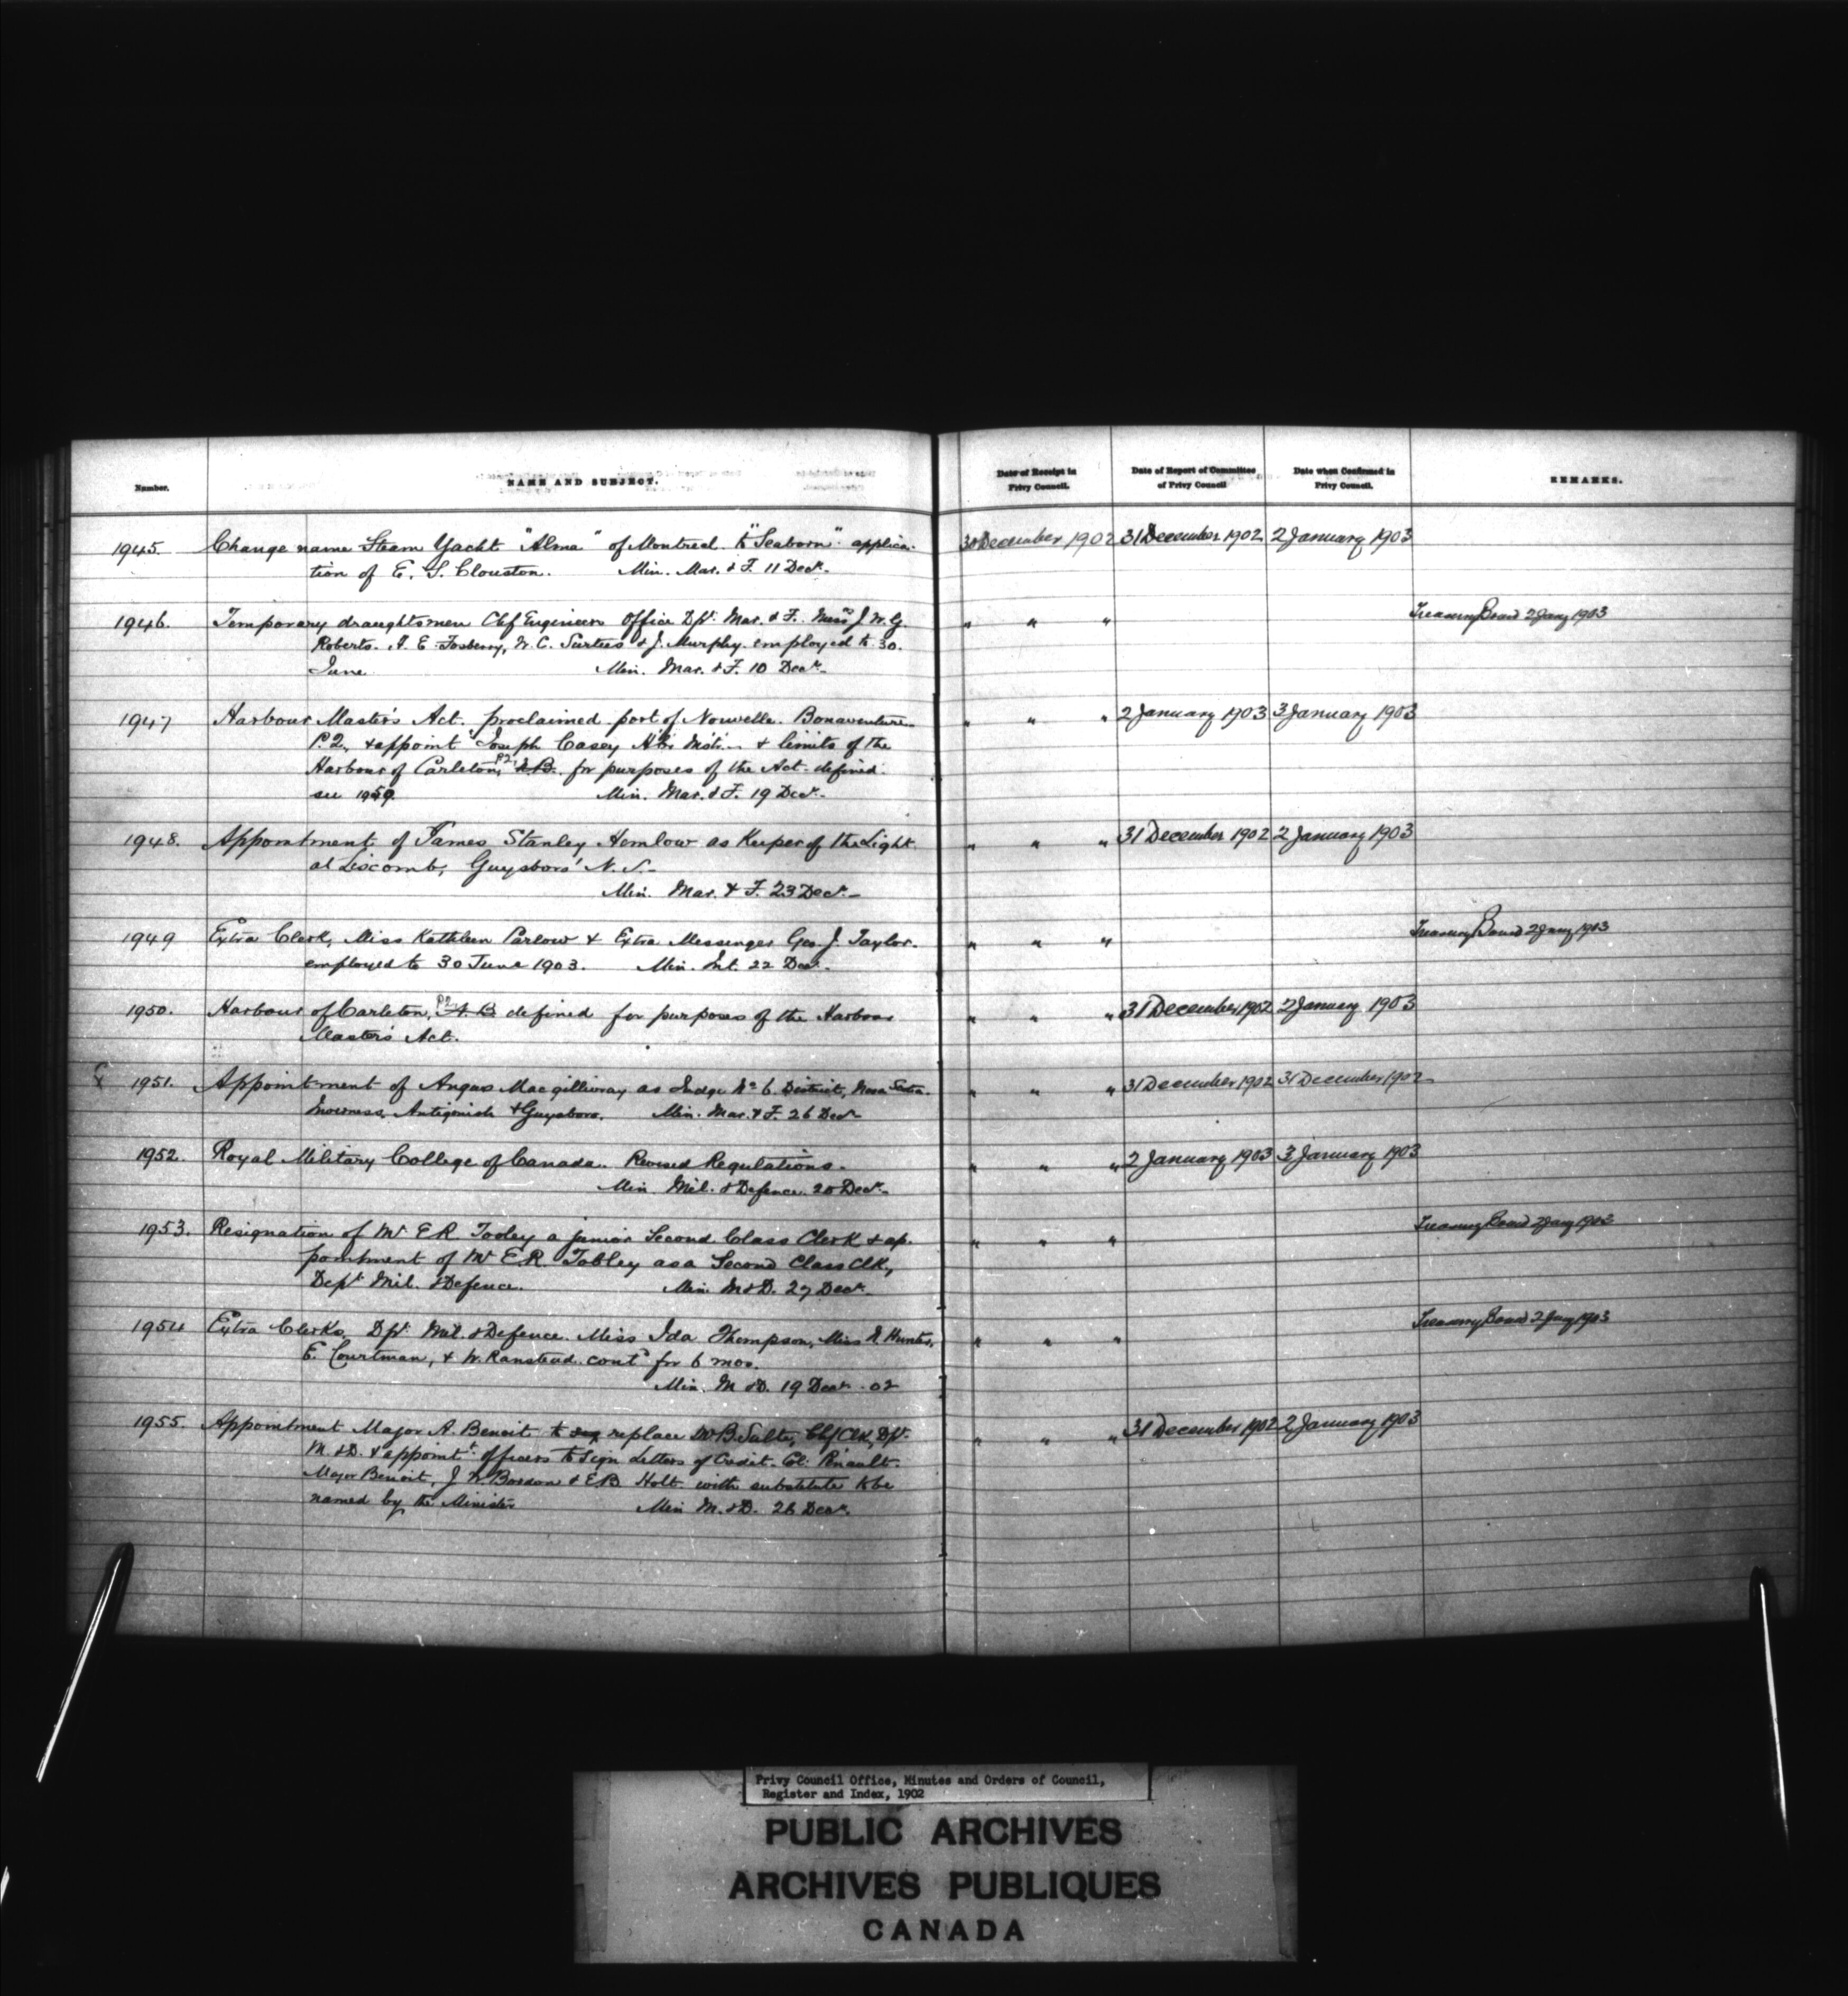 Number.
NAME AND SUBJECT.
Date of Receipt in Privy Council.
Date of Report of Committee of Privy Council
Date when Confirmed in Privy Council.
REMARKS.
1945. Change name Steam Yacht "Alma" of Montreal to "Seaborn" applica- 30 December 1902 31 December 1902 2 January 1903
tion of E. S. Clouston. Min. Mar. & F. 11 Decr.
1946. Temporary draughtsmen Chf Engineers Office Dpt. Mar. & F. Messrs J. W. G. " " " Treasury Board 2 Jany 1903
Roberts. A. E. Fosberry, W. C. Surtees & J. Murphy employed to 30.
June Min. Mar. & F. 10 Decr.
1947 Harbour Master's Act. proclaimed port of Nouvelle. Bonaventure " " " 2 January 1903 3 January 1903
P.Q., & appoint Joseph Casey Hbr Mstr. & limits of the
Harbour of Carleton, P.Q. N.B. for purposes of the Act defined.
see 1950. Min. Mar. & F. 19 Decr.
1948. Appointment of James Stanley Hemlow as Keeper of the Light " " " 31 December 1902 2 January 1903
at Liscomb, Guysboro' N.S.
Min. Mar. & F. 23 Decr.
1949 Extra Clerk, Miss Kathleen Parlow & Extra Messenger Geo. J. Taylor. " " " Treasury Board 2 Jany 1903
employed to 30 June 1903. Min. Int. 22 Decr.
1950. Harbour of Carleton, P.Q. N.B. defined for purposes of the Harbour " " " 31 December 1902 2 January 1903
Master's Act.
1951. Appointment of Angus Macgillivray as Judge No 6 District, Nova Scotia. " " " 31 December 1902 31 December 1902
Inverness, Antigonish & Guysboro. Min. Mar. & F. 26 Decr
1952. Royal Military College of Canada. Revised Regulations. " " " 2 January 1903 3 January 1903
Min. Mil. & Defence 20 Decr.
1953. Resignation of Mr E R Tooley a junior Second Class Clerk & ap- " " " Treasury Board 2 Jany 1903
pointment of Mr E. R. Tobley as a Second Class Clk,
Dept Mil. & Defence. Min. M & D. 27 Decr.
1954 Extra Clerks, Dpt. Mil. & Defence. Miss Ida Thompson, Miss N Hunter, " " " Treasury Board 2 Jany 1903
E. Courtman, & W. Ranstead contd for 6 mos.
Min. M & D. 19 Decr. 02
1955. Appointment Major A. Benoit to replace Mr B. Sulte, Chf Clk, Dpt. " " " 31 December 1902 2 January 1903
M. & D. & appointt. officers to sign Letters of Credit. Col. Pinault.
Major Benoit, J. W. Borden & E. B. Holt with substitute to be
named by the Minister Min M. & D. 26 Decr.
Privy Council Office, Minutes and Orders of Council,
Register and Index, 1902
PUBLIC ARCHIVES
ARCHIVES PUBLIQUES
CANADA